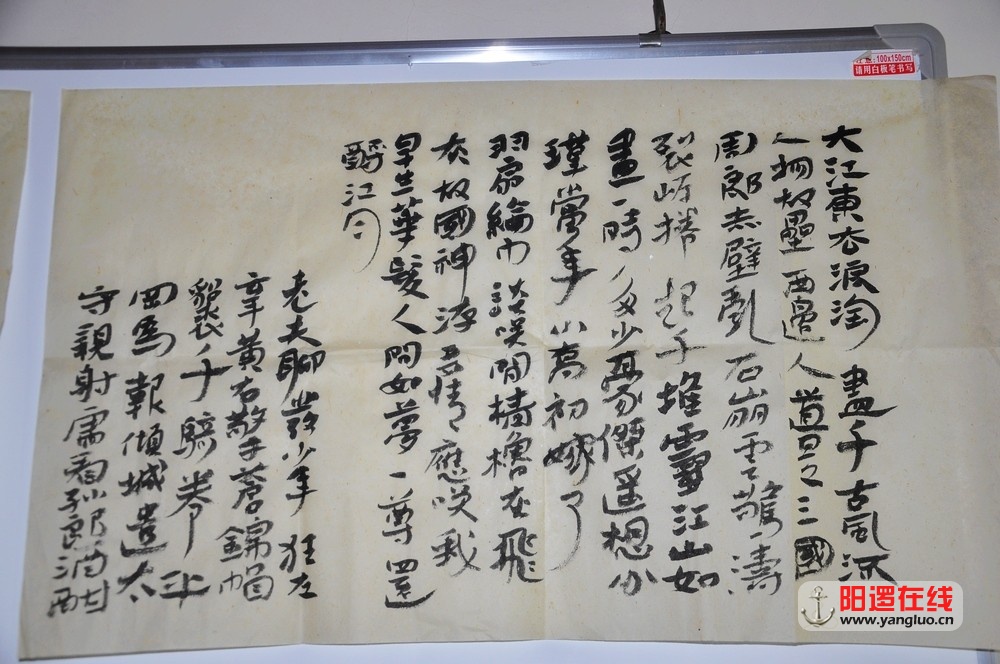 大江東去浪淘盡千古風流
人物故壘西邊人道是三國
周郎赤壁亂石崩雲驚濤
裂岸捲起千堆雪江山如
畫一時多少豪傑遙想公
瑾當年小喬初嫁了
羽扇綸巾談笑間檣櫓灰飛
故國神游多情應笑我
早生華髮人間如夢一尊還
酹江月
老夫聊發少年狂左
牽黃右擎蒼錦帽
貂裘千騎卷平
岡馬報傾城遣太
守親射虎看孫郎酒酣
100x150cm
請用白板笔书写
阳逻在线
www.yangluo.cn